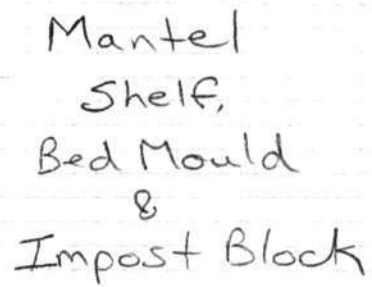 Mantel
Shelf,
Bed Mould
&
Impost Block